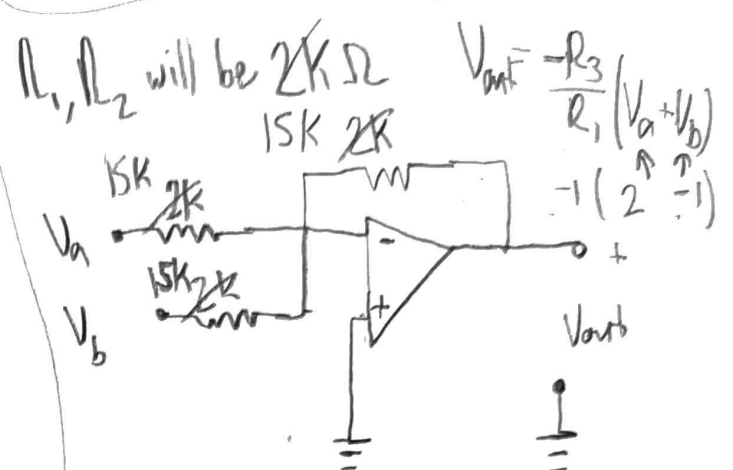 R₁, R₂ will be 2K Ω
Vout = -R₃/R₁ (Va + Vb)
-1 ( 2 -1)
15K 2K
15K 2K
Va
15K 2K
Vb
-
+
+
Vout